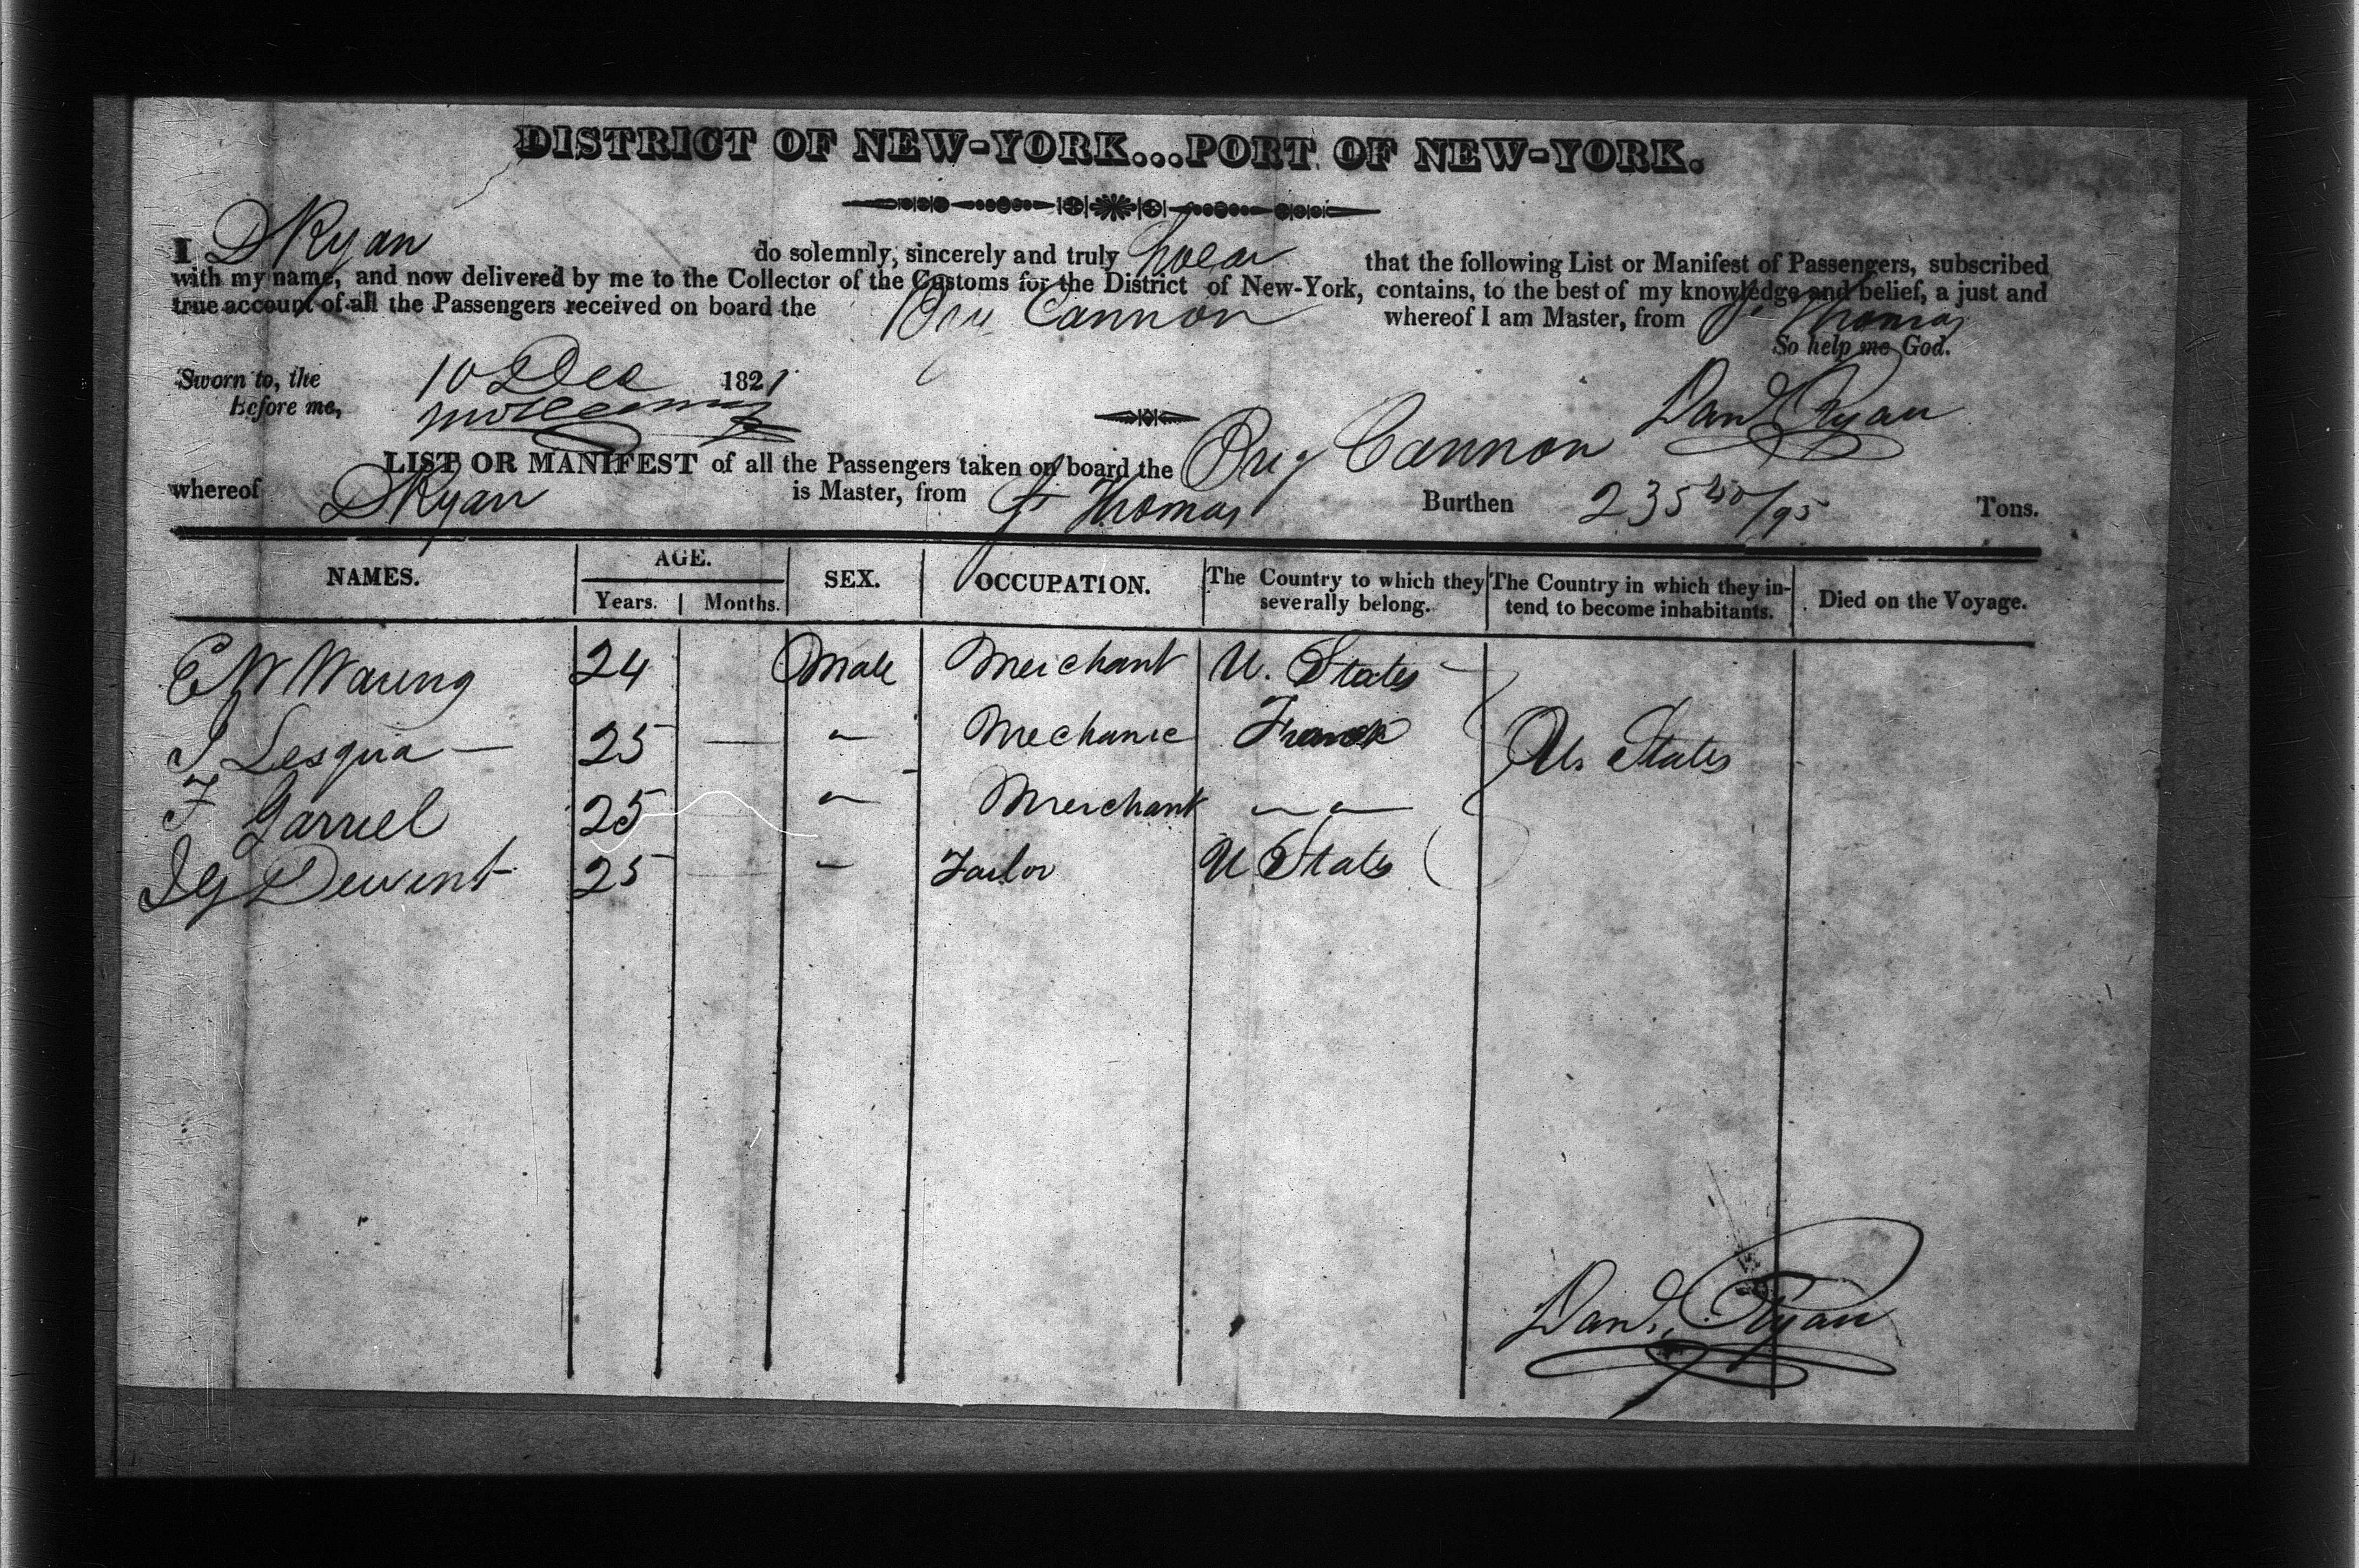 DISTRICT OF NEW-YORK...PORT OF NEW-YORK.
I D Ryan do solemnly, sincerely and truly swear that the following List or Manifest of Passengers, subscribed
with my name, and now delivered by me to the Collector of the Customs for the District of New-York, contains, to the best of my knowledge and belief, a just and
true account of all the Passengers received on board the Brig Cannon whereof I am Master, from St Thomas
So help me God.
Sworn to, the 10 Dec 1821
Before me, Danl Ryan
LIST OR MANIFEST of all the Passengers taken on board the Brig Cannon
whereof D Ryan is Master, from St Thomas Burthen 235 40/95 Tons.
NAMES. AGE. SEX. OCCUPATION. The Country to which they severally belong. The Country in which they intend to become inhabitants. Died on the Voyage.
Years. Months.
E W Waring 24 Male Merchant U. States
J Lesqua — 25 — " Mechanic French U. States
F Garruel 25 " Merchant " "
J G Dewint 25 " Tailor U States
Danl. Ryan